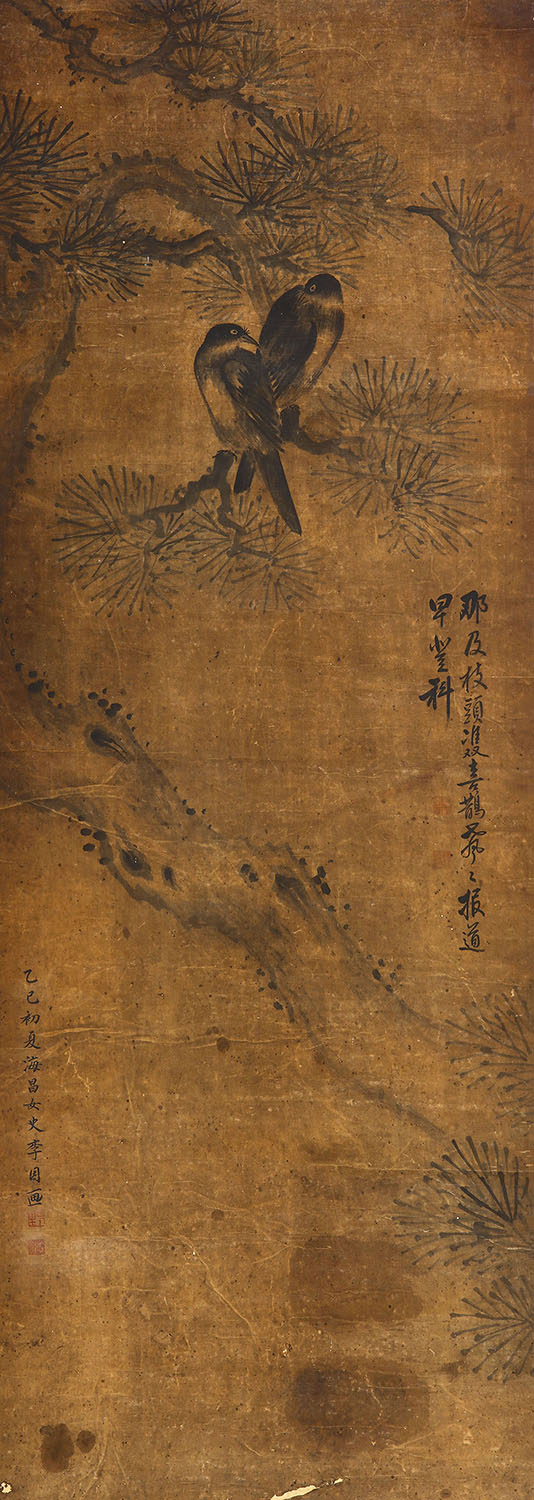 那及枝頭雙喜鵲〻报道
早登科
乙巳初夏海昌女史李因画